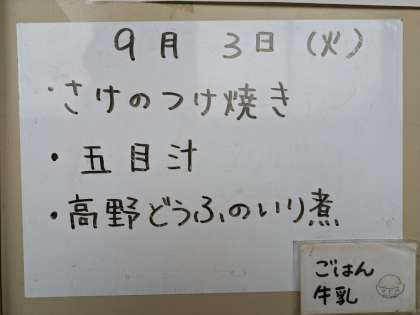 9月 3日 (火)
・さけのつけ焼き
・五目汁
・高野どうふのいり煮
ごはん
牛乳